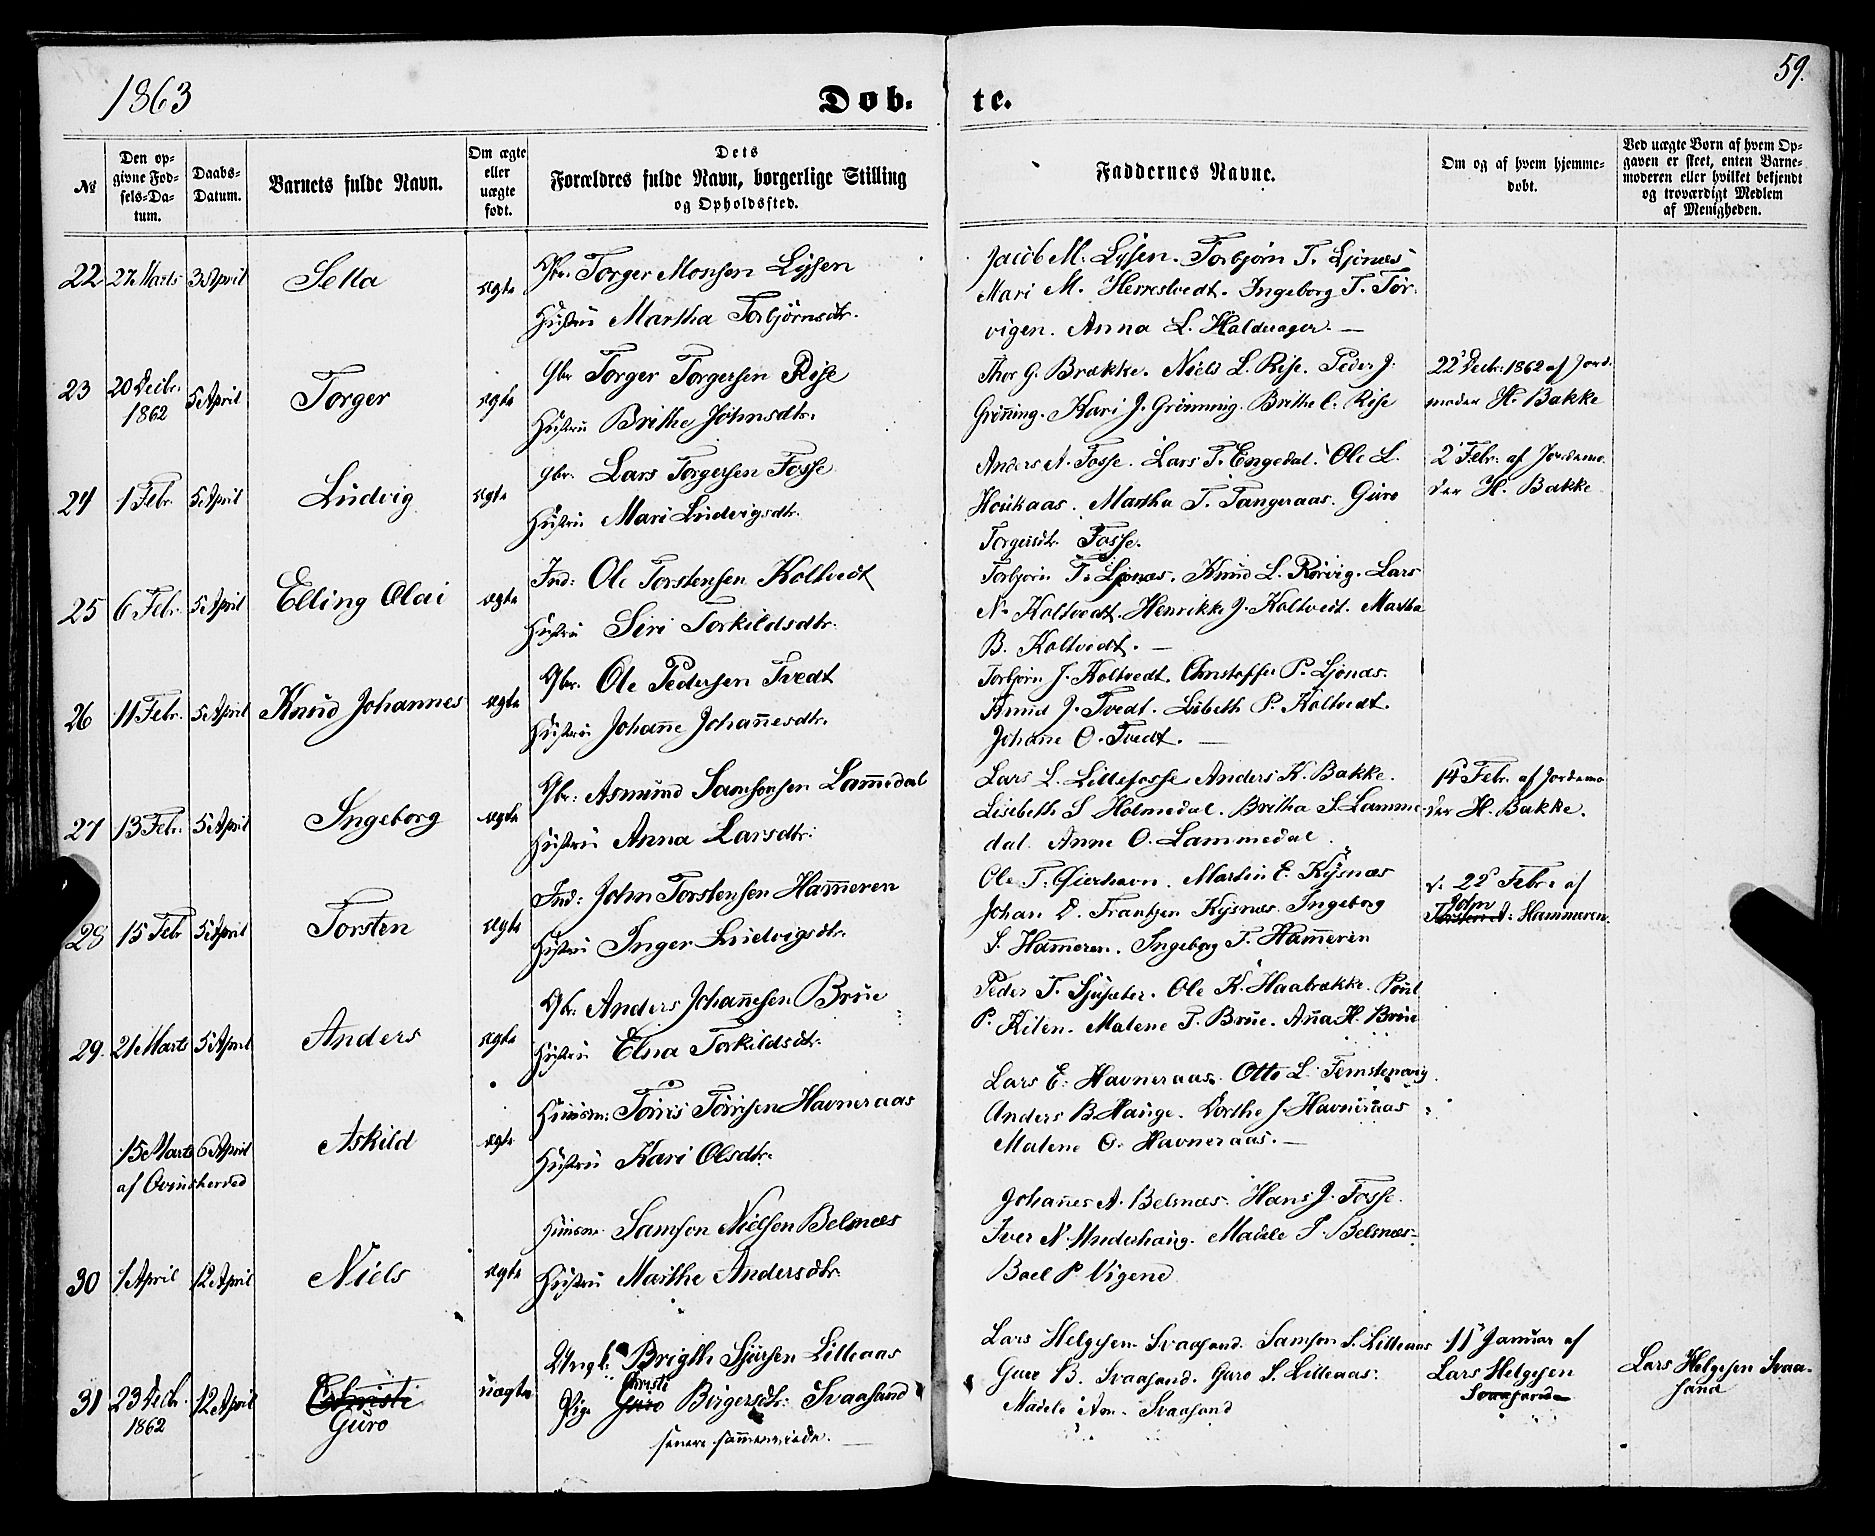 1863
Døb-
te.
59.
№
Den op-
givne Fød-
sels-Da-
tum.
Daabs-
Datum.
Barnets fulde Navn.
Om ægte
eller
uægte
født.
Dets
Forældres fulde Navn, borgerlige Stilling
og Opholdssted.
Faddernes Navne.
Om og af hvem hjemme-
døbt.
Ved uægte Børn af hvem Op-
gaven er skeet, enten Barne-
moderen eller hvilket bekjendt
og troværdigt Medlem
af Menigheden.
22 27 Marts 3 April Sella ægte Gbr. Torger Monsen Lysen
Hustru Martha Torbjørnsdtr.
Jacob M. Lysen. Torbjørn T. Ljonæs
Mari M. Herrestvedt. Ingeborg T. Tør-
vigen. Anna L. Haldorager. —
23 20 Decbr. 1862 5 April Torger ægte Gbr Torger Torgersen Rise
Hustru Brithe Johnsdtr.
Thor G. Brække. Niels L. Rise. Peder J.
Grønning. Kari J. Grønning. Brithe C. Rise
22 Decbr. 1862 af Jord-
moder H. Bakke
24 1 Febr. 5 April Ludvig ægte Gbr. Lars Torgersen Fosse
Hustru Mari Ludvigsdtr.
Anders A. Fosse. Lars T. Engedal. Ole L.
Houkaas. Martha T. Tangeraas. Guro
Torgersdtr. Fosse.
2 Febr. af Jordemo-
der H. Bakke
25 6 Febr. 5 April Elling Olai ægte Ind: Ole Torstensen Koltvedt
Hustru Siri Torkildsdtr.
Torbjørn T. Ljonæs. Knud L. Rørvig. Lars
N. Koltvedt. Henrikke J. Koltvedt. Martha
B. Koltvedt. —
26 11 Febr. 5 April Knud Johannes ægte Gbr. Ole Pedersen Tvedt
Hustru Johane Johanesdtr.
Torbjørn J. Koltvedt. Christoffer P. Ljonæs.
Knud J. Tvedt. Lisbeth P. Koltvedt.
Johane O. Tvedt. —
27 13 Febr. 5 April Ingeborg ægte Gbr: Asmund Samsonsen Lamedal
Hustru Anna Larsdtr:
Lars L. Lillefosse Anders K. Bakke.
Lisebeth S Holmedal. Britha S. Lamme-
dal. Anne O. Lammedal.
14 Febr. af Jordemo-
der H. Bakke.
28 15 Febr 5 April Torsten ægte Ind: John Torstensen Hameren
Hustru Inger Ludvigsdtr.
Ole T. Øierhavn. Martin E. Kysnæs
Johan D. Frantzen Kysnæs. Ingeborg
S. Hameren. Ingeborg T. Hameren
d. 22 Febr. af
John
A: Hammeren.
29. 21 Marts 5 April Anders ægte Gbr: Anders Johanesen Brue
Hustru Elna Torkildsdtr.
Peder T. Sjusæter. Ole K. Haabrække. Poul
P. Kilen. Malene T. Brue. Ana H. Brue
15 Marts 6 April Askild ægte Huusm: Tørris Tørrisen Havneraas
af Ovindsherred
Hustru Kari Olsdtr.
Lars E. Havneraas. Otto L. Femstenevig.
Anders B. Hauge. Dorthe J. Havneraas
Malene O. Havneraas. —
30 1 April 12 April Niels ægte Huusm. Samson Nielsen Belsnæs
Hustru Marthe Andersdtr.
Johanes A. Belsnæs. Hans J. Fosse.
Iver N. Mundenhaug. Madele S. Belsnæs.
Boel P Vigene
31 23 Decb. 1862 12 April Christi Guro uægte Ungk: Brigth Sjursen Lilleaas
Christi
Pige Guro Birgersdtr. Svaasand
senere sammenviede. —
Lars Helgesen Svaasand. Samson S. Lilleaas
Guro B. Svaasand. Guro S. Lilleaas.
Madele Svaasand
11 Januar af
Lars Helgesen
Svaasand
Lars Helgesen Svaa-
sand